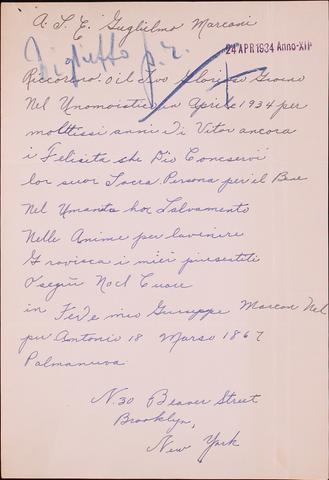 A. S. E. Guglielmo Marconi
Biglietto p. r.
24 APR 1934 Anno-XII
Riccorero il Suo Glorioso Giorno
Nel Unomoistico in Aprile 1934 per
molttissi anni di Vitor ancora
i Felisita she Dio Conservi
lor suor Sacra Persona per il Bue
Nel Umanta hoc Salvamento
Nelle Anime per lavinire
Gravisca i miei piresettili
Osegui Nocl Cuore
in Fede mio Guiseppe Marcon Nel
per Antonio 18 Marso 1867
Palmanuva
N. 30 Beaver Street
Brooklyn,
New York